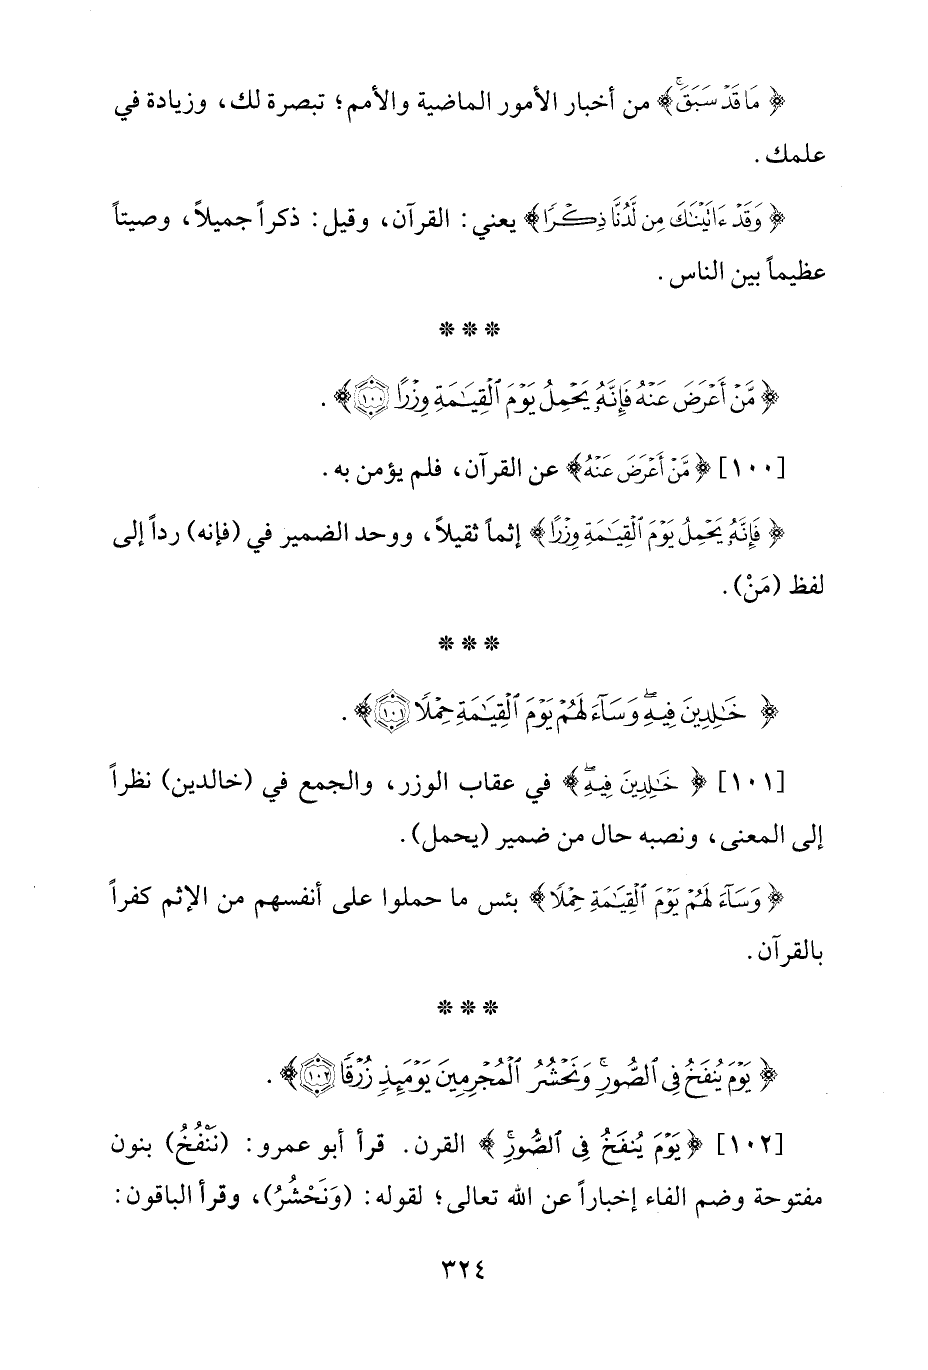 ﴿مَا قَدْ سَبَقَۚ﴾ من أخبار الأمور الماضية والأمم؛ تبصرة لك، وزيادة في
علمك.
﴿وَقَدْ ءَاتَيْنَٰكَ مِن لَّدُنَّا ذِكْرًا﴾ يعني: القرآن، وقيل: ذكراً جميلاً، وصيتاً
عظيماً بين الناس.
* * *
﴿مَّنْ أَعْرَضَ عَنْهُ فَإِنَّهُۥ يَحْمِلُ يَوْمَ ٱلْقِيَٰمَةِ وِزْرًا ١٠٠﴾.
[١٠٠] ﴿مَّنْ أَعْرَضَ عَنْهُ﴾ عن القرآن، فلم يؤمن به.
﴿فَإِنَّهُۥ يَحْمِلُ يَوْمَ ٱلْقِيَٰمَةِ وِزْرًا﴾ إثماً ثقيلاً، ووحد الضمير في (فإنه) رداً إلى
لفظ (مَنْ).
* * *
﴿خَٰلِدِينَ فِيهِۖ وَسَآءَ لَهُمْ يَوْمَ ٱلْقِيَٰمَةِ حِمْلًا ١٠١﴾.
[١٠١] ﴿خَٰلِدِينَ فِيهِۖ﴾ في عقاب الوزر، والجمع في (خالدين) نظراً
إلى المعنى، ونصبه حال من ضمير (يحمل).
﴿وَسَآءَ لَهُمْ يَوْمَ ٱلْقِيَٰمَةِ حِمْلًا﴾ بئس ما حملوا على أنفسهم من الإثم كفراً
بالقرآن.
* * *
﴿يَوْمَ يُنفَخُ فِى ٱلصُّورِۚ وَنَحْشُرُ ٱلْمُجْرِمِينَ يَوْمَئِذٍ زُرْقًا ١٠٢﴾.
[١٠٢] ﴿يَوْمَ يُنفَخُ فِى ٱلصُّورِۚ﴾ القرن. قرأ أبو عمرو: (نَنْفُخُ) بنون
مفتوحة وضم الفاء إخباراً عن الله تعالى؛ لقوله: (وَنَحْشُرُ)، وقرأ الباقون:
٣٢٤